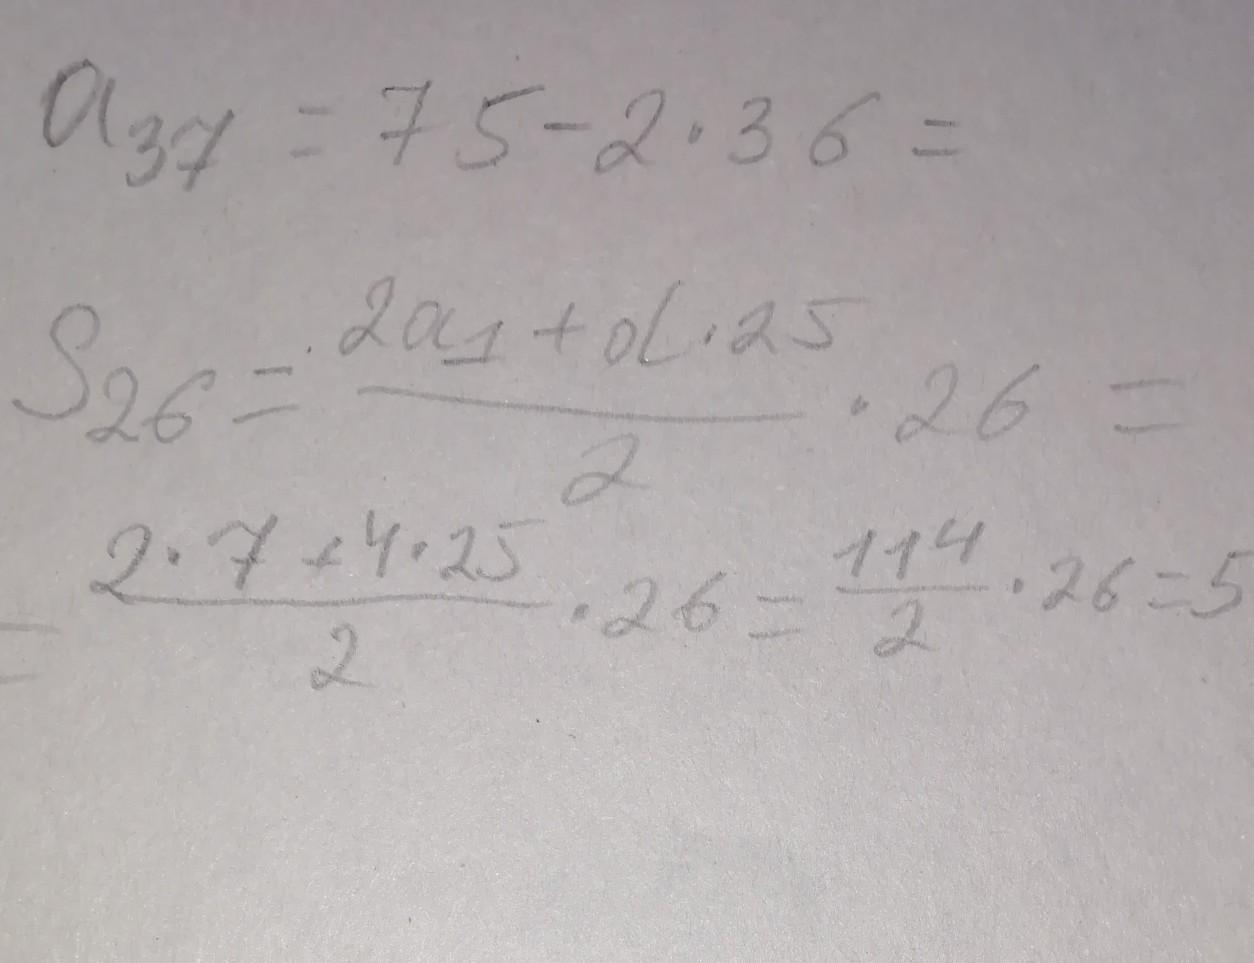 a₃₇ = 75 - 2 · 36 =
S₂₆ = (2a₁ + d · 25)/2 · 26 =
= (2 · 7 + 4 · 25)/2 · 26 = 114/2 · 26 = 5